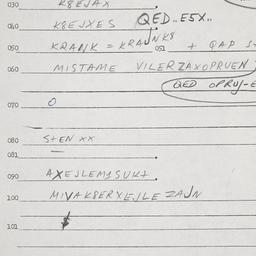 030 K8EJAX
040 K8EJXES QED..E5X..
050 KRANK = KRAUNK8 051 + QAP S
060 MISTAME VILERZAXOPRUEN
QED OPRUJ-E
070 O
080 STEN XX
081
090 AXEJLEM1SUKT
1.00 MIVAK8ERXEJLE ZAJN
1.01 $